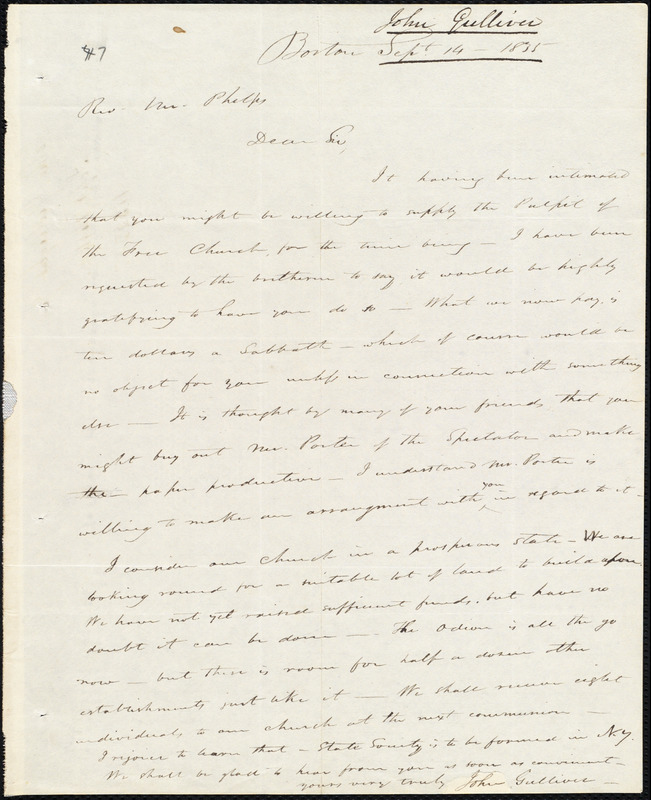 John Gulliver
#7
Boston Sept 14 - 1835
Rev. Mr. Phelps
Dear Sir,
It having been intimated
that you might be willing to supply the Pulpit of
the Free Church, for the time being - I have been
requested by the brethren to say it would be highly
gratifying to have you do so - What we now pay, is
ten dollars a Sabbath - which of course would be
no object for you unless in connection with something
else - It is thought by many of your friends that you
might buy out Mr. Porter of the Spectator and make
the - paper productive - I understand Mr. Porter is
willing to make an arrangment with you in regard to it -
I consider our Church in a prosperous state - We are
looking round for a suitable lot of land to build upon.
We have not yet raised sufficient funds. but have no
doubt it can be done - The Odeon is all the go
now - but there is room for half a dozen other
establishments just like it - We shall receive eight
individuals to our church at the next communion -
I rejoice to learn that - State Society is to be formed in N.Y.
We shall be glad to hear from you as soon as convenient -
yours very truly John Gulliver -